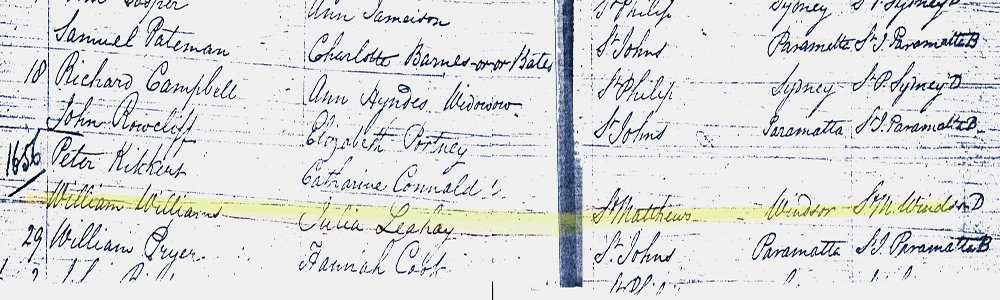 Ann Jamaison St Philip Sydney
Samuel Pateman Charlotte Barnes-or-or Bates St Johns Paramatta St J. Paramatta B
18 Richard Campbell Ann Hyndes Widow St Philip Sydney St P. Sydney D
John Rowcliff Elizabeth Portney St Johns Paramatta St J. Paramatta B
1656 Peter Kikkert Catharine Connald
William Williams Julia Leahay St Matthews Windsor St M. Windsor D
29 William Pryer Hannah Cook St Johns Paramatta St J. Paramatta B